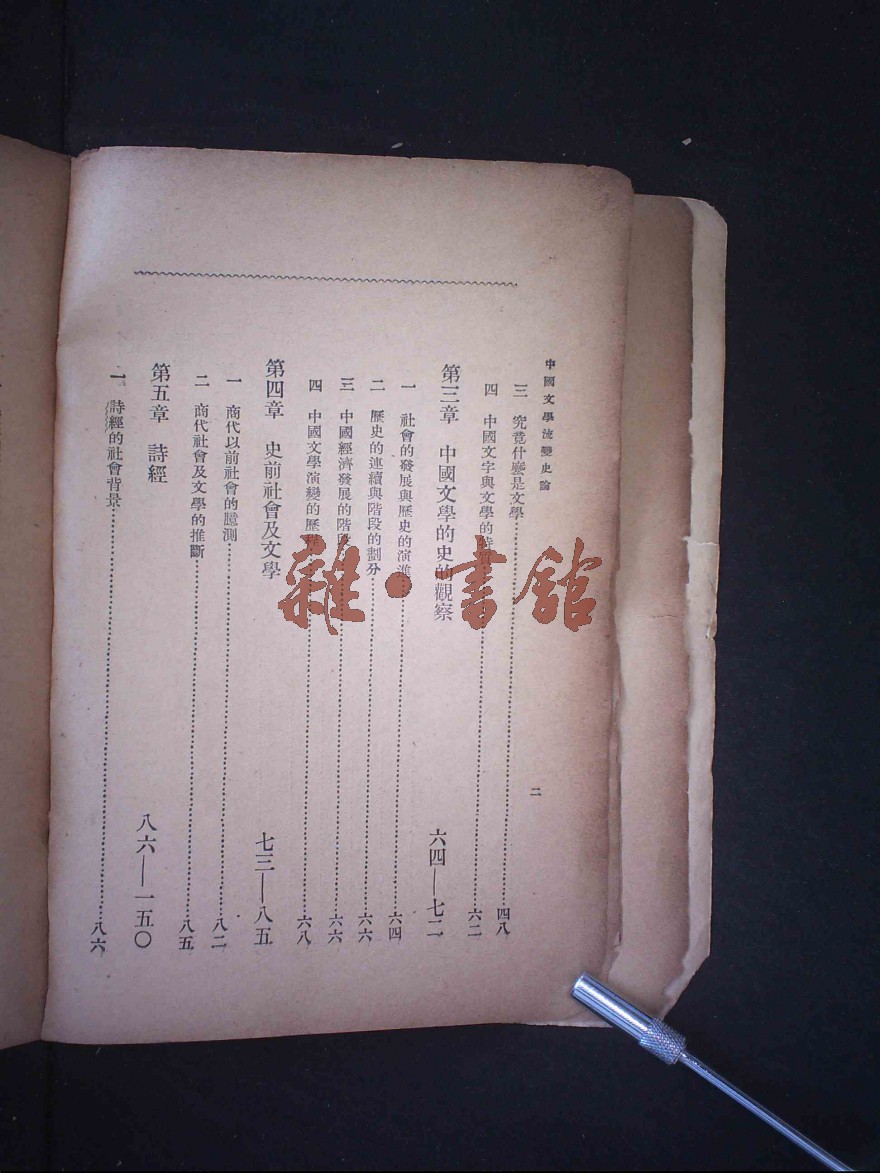 中國文學流變史論
二
三 究竟什麼是文學……四八
四 中國文字與文學的特質……六二
第三章 中國文學的史的觀察 六四—七二
一 社會的發展與歷史的演進……六四
二 歷史的連續與階段的劃分……六六
三 中國經濟發展的階段……六六
四 中國文學演變的歷程……六八
第四章 史前社會及文學 七三—八五
一 商代以前社會的臆測……八二
二 商代社會及文學的推斷……八五
第五章 詩經 八六—一五〇
一 詩經的社會背景……八六
雜·書館